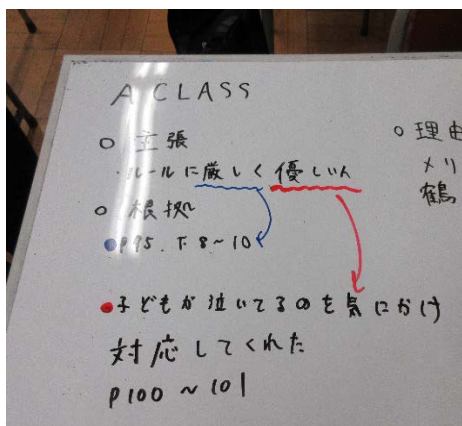 A CLASS
○ 主張
・ルールに厳しく優しい人
○ 根拠
●P95.下8~10
●子どもが泣いてるのを気にかけ
対応してくれた
P100~101
○理由
メリ
鶴